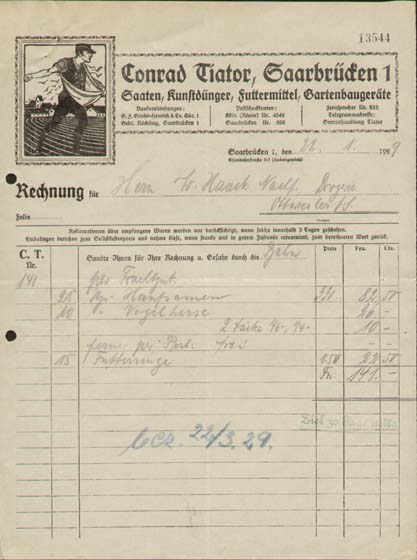 13544
Conrad Tiator, Saarbrücken 1
Saaten, Kunstdünger, Futtermittel, Gartenbaugeräte
Bankverbindungen: Postscheckkonten: Fernsprecher Nr. 835
G. F. Grohé-Henrich & Co. Sbr. 1 Köln (Rhein) Nr. 4548 Telegrammadresse:
Gebr. Röchling, Saarbrücken 1 Saarbrücken Nr. 200 Samenhandlung Tiator
Saarbrücken 1, den 22. 1. 1929
Rechnung für Herrn W. Haack Nachf. Drogerie
Ottweiler
Folio
Reklamationen über empfangene Waren werden nur berücksichtigt, wenn solche innerhalb 3 Tagen geschehen.
Emballagen berechne zum Selbstkostenpreis und nehme diese, wenn franko und in gutem Zustande retourniert, zum berechneten Wert zurück.
C. T. Nr. Sandte Ihnen für Ihre Rechnung u. Gefahr durch die Bahn Preis Frcs. Cts.
141 per Frachtgut
25 Kg. Hanfsamen 3.30 82 50
10 " Vogelhirse 26 -
2 Säcke 10 -
ferner per Post frei
15 Futterringe 1.50 22 50
Fr. 141 -
Ziel 30 Tage netto
bez. 22/3. 29.